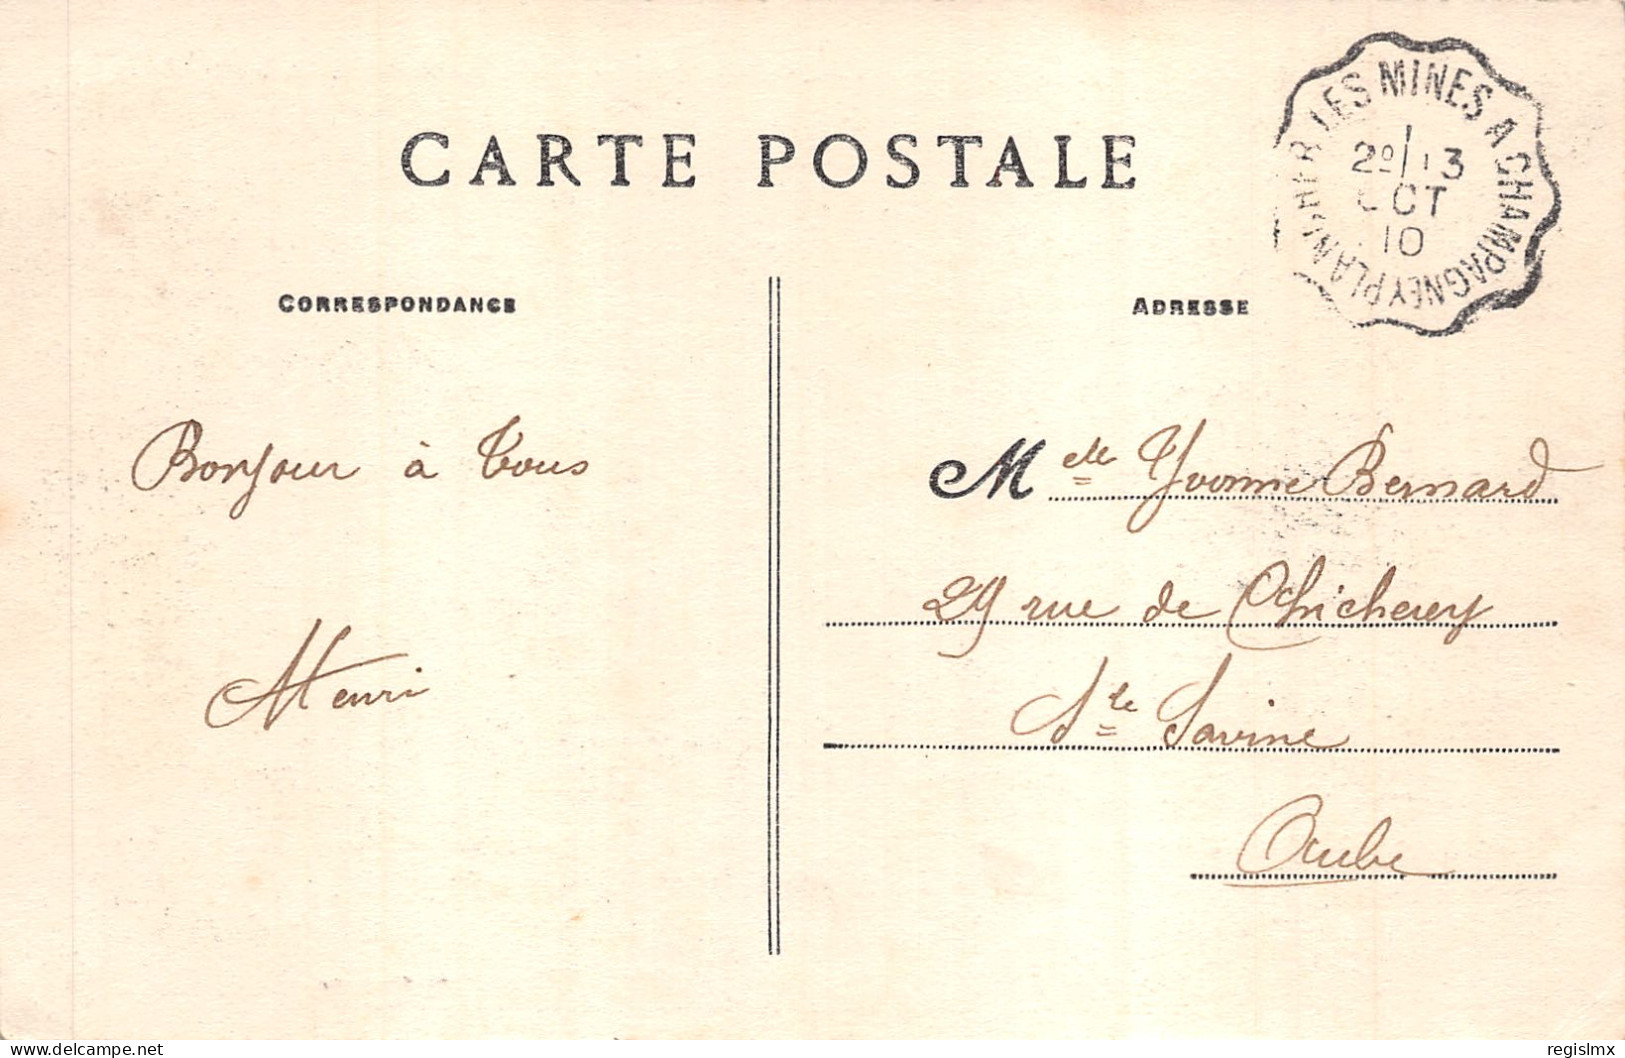 CARTE POSTALE
PLANCHER LES MINES A CHAMPAGNEY
2º/13
OCT
10
CORRESPONDANCE
ADRESSE
Bonjour à Tous
Henri
Melle Yvonne Bernard
29 rue de Chicherey
Ste Savine
Aube
delcampe.net
regislmx